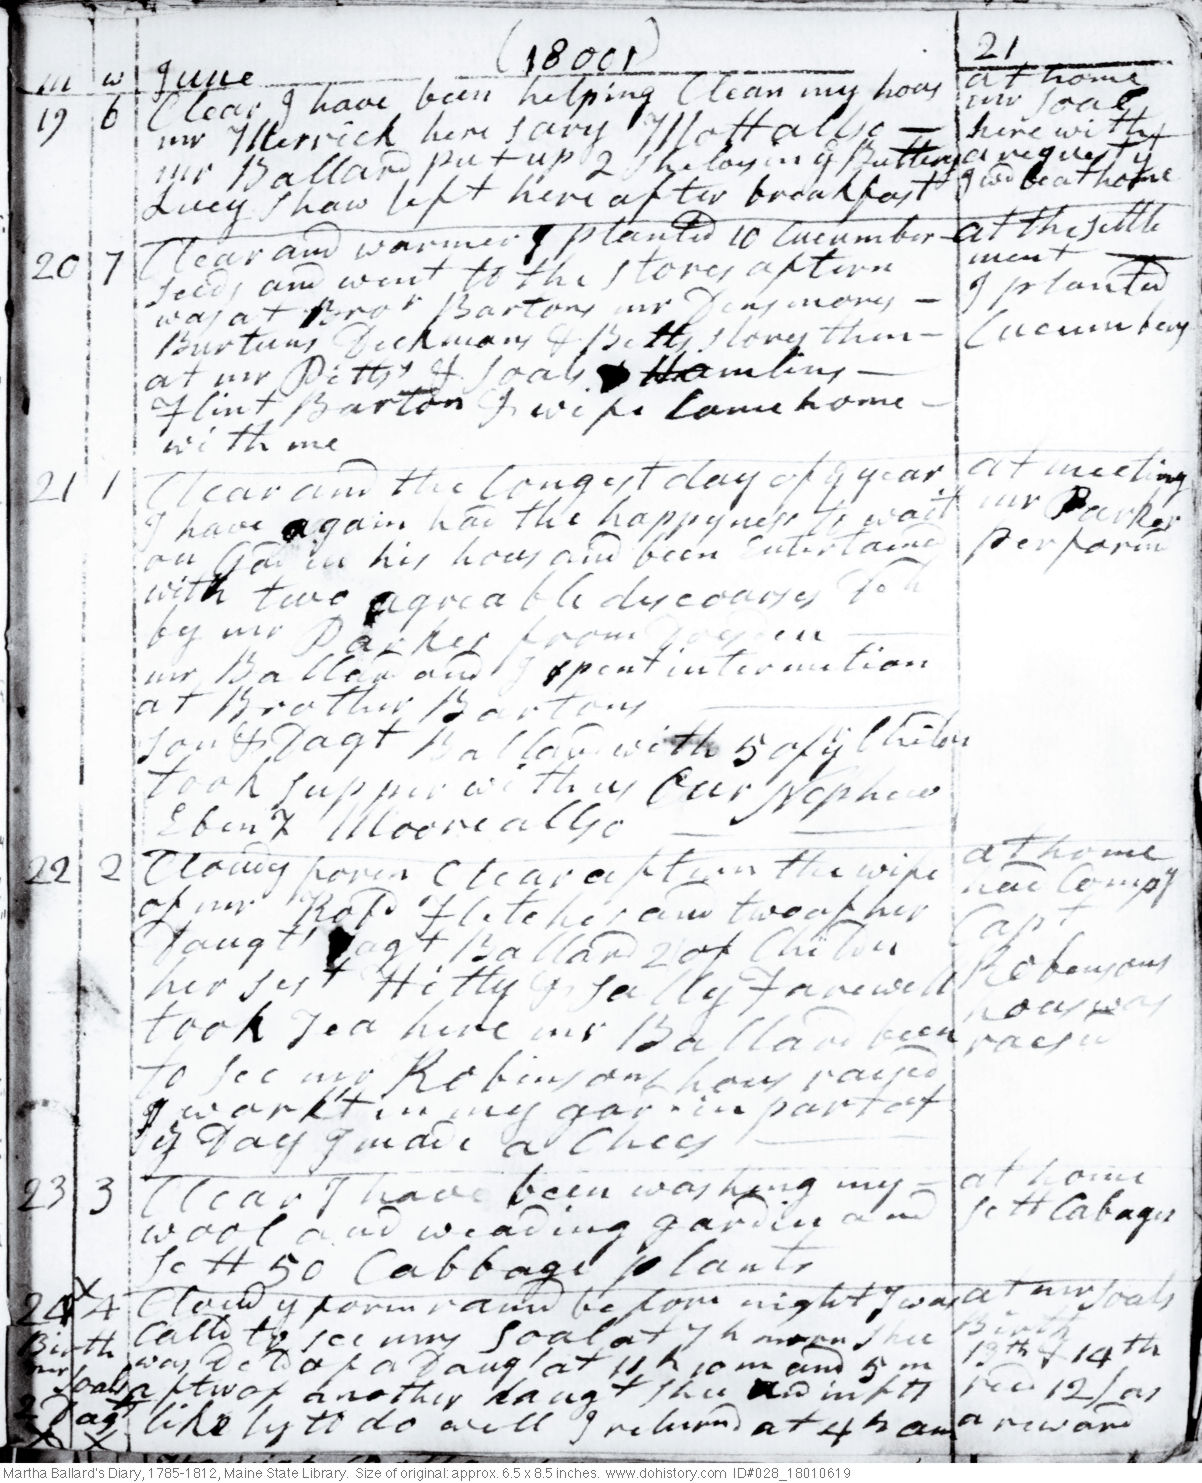 (1800 1) 21
m w June
at home
19 6 Clear I have been helping Clean my hous
mr Soal
mr Merrick here Sary Mott allso –
here with
mr Ballard put up 2 shelvs in ÿ Buttery
a request
I wd be at home
Lucy Shaw left here after breakfast
20 7 Clear and warmer I planted 10 Cucumber
at the settle
ment
seeds and went to the stores aftern
I planted
was at Bror Bartons mr Densmores –
Cucumbers
Burtuns Dickmans & Betts stores then –
at mr Pitts' & Soals & Hamlins –
Flint Barton & wife Came home –
with me
21 1 Clear and the Longest day of ÿ year
at meeting
mr Parker
I have again had the happyness to wait
perform
on God in his hous and been Entertaind
with two agreable discoarses Toh
by mr Parker from
mr Ballard and I spent intermition
at Brother Bartons
son & Dagt Ballard with 5 of ÿ Chiln
took supper with us Our Nephew
Ebenz Moore allso
22 2 Clowdy foren Clear aftern the wife
at home
had Compÿ
of mr Robd Fletcher and two of her
Capt
Daugts Dagt Ballard 2 of Chiln
Robinsons
her sist Hitty & Sally Farewell
hous was
took Tea here mr Ballard been
raisd
to see mr Robinsons hous raised
I workt in my gardin part of
ÿ Day I made a Chees
23 3 Clear I have been washing my –
at home
wool and weading gardin and
sett Cabages
sett 50 Cabbage plants
24 4 Clowdy foren & raind before night I was
at mr Soals
Birth
Calld to see mrs Soal at 7 h morn shee
Birth
mr
was DeLd of a Daugt at 11 h 10 m and 5 m
13th & 14th
Soals
aft two of another Daugt shee and infts
recd 12/ as
2 Dagt
likely to do well I returnd at 4 h am
a reward
X X
Martha Ballard's Diary, 1785-1812, Maine State Library. Size of original: approx. 6.5 x 8.5 inches. www.dohistory.com ID#028_18010619